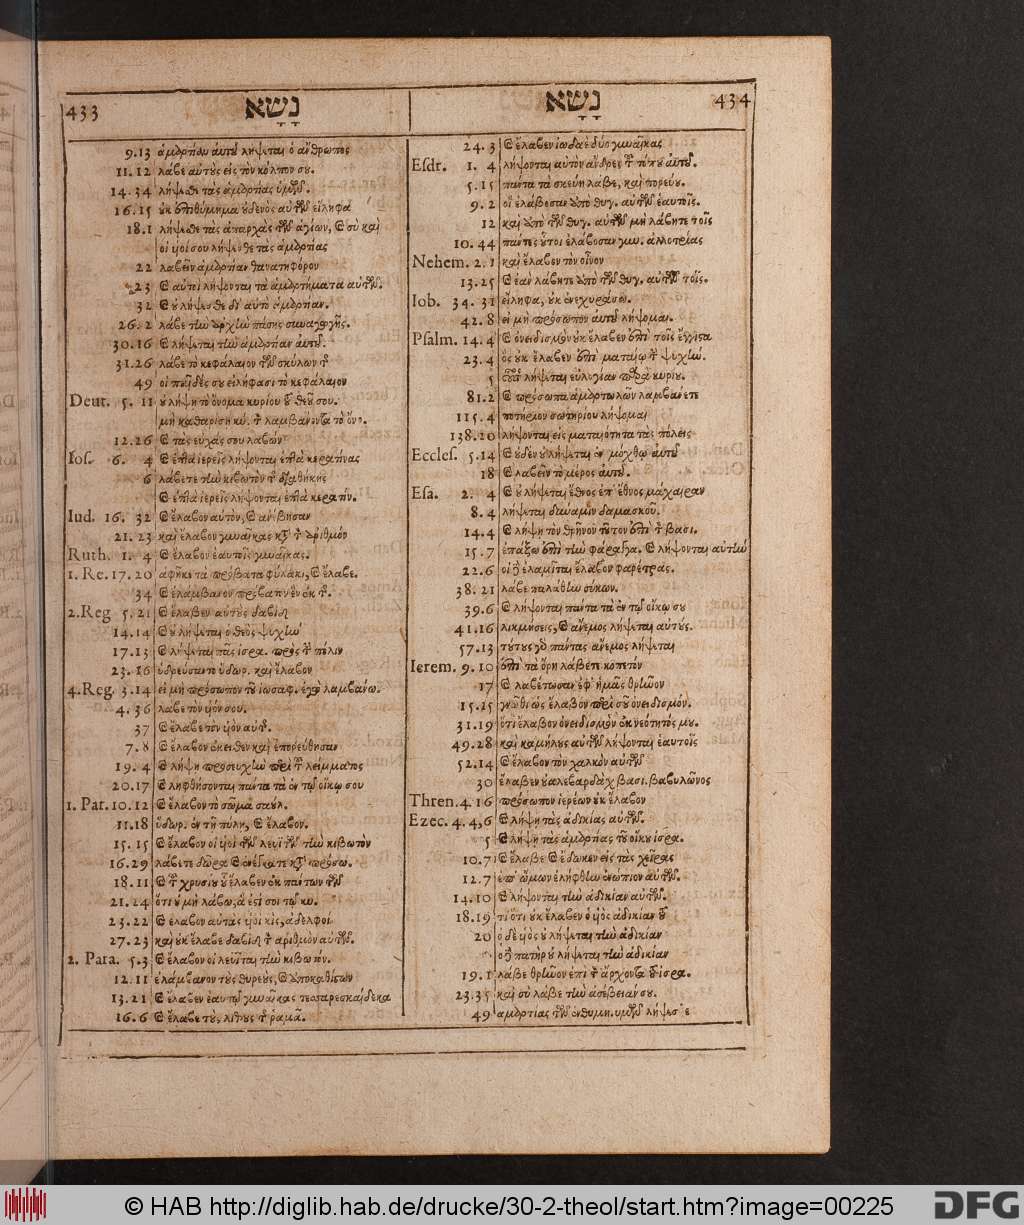 433 נָשָׂא
נָשָׂא 434
9.13 ἁμαρτίαν αὐτοῦ λήψεται ὁ ἄνθρωπος
11.12 λάβε αὐτοὺς εἰς τὸν κόλπον σου.
14.34 λήψεσθε τὰς ἁμαρτίας ὑμῶν.
16.15 οὐκ ἐπιθύμημα οὐδενὸς αὐτῶν εἴληφα
18.1 λήψεσθε τὰς ἀπαρχὰς τῶν ἁγίων, καὶ σὺ καὶ
οἱ υἱοί σου λήψεσθε τὰς ἁμαρτίας
22 λαβεῖν ἁμαρτίαν θανατηφόρον
23 καὶ αὐτοὶ λήψονται τὰ ἁμαρτήματα αὐτῶν.
32 καὶ οὐ λήψεσθε δι' αὐτὸ ἁμαρτίαν.
26.2 λάβε τὴν ἀρχὴν πάσης συναγωγῆς.
30.16 καὶ λήψεται τὴν ἁμαρτίαν αὐτοῦ.
31.26 λάβε τὸ κεφάλαιον τῶν σκύλων τῆς
49 οἱ παῖδές σου εἰλήφασι τὸ κεφάλαιον
Deut. 5. 11 οὐ λήψῃ τὸ ὄνομα κυρίου τοῦ θεοῦ σου.
μὴ καθαρίσῃ κύ. τὸν λαμβάνοντα τὸ ὄνο.
12.26 καὶ τὰς εὐχάς σου λαβών
Ios. 6. 4 καὶ ἑπτὰ ἱερεῖς λήψονται ἑπτὰ κερατίνας
6 λάβετε τὴν κιβωτὸν τῆς διαθήκης
καὶ ἑπτὰ ἱερεῖς λήψονται ἑπτὰ κερατίν.
Iud. 16. 32 καὶ ἔλαβον αὐτὸν, καὶ ἀνέβησαν
21. 23 καὶ ἔλαβον γυναῖκας κατὰ τὸν ἀριθμόν
Ruth. 1. 4 καὶ ἔλαβον ἑαυτοῖς γυναῖκας.
1. Re. 17. 20 ἀφῆκε τὰ πρόβατα φύλακι, καὶ ἔλαβε.
34 καὶ ἐλάμβανον πρόβατον ἐκ τῆς.
2.Reg 5. 21 καὶ ἔλαβεν αὐτοὺς δαβίδ
14.14 καὶ οὐ λήψεται ὁ θεὸς ψυχὴν
17.13 καὶ λήψεται πᾶς ἰσρα. πρὸς τὴν πόλιν
23.16 ὑδρεύσαντο ὕδωρ. καὶ ἔλαβον
4.Reg. 3.14 εἰ μὴ πρόσωπον τοῦ ἰωσαφ. ἐγὼ λαμβάνω.
4.36 λάβε τὸν υἱόν σου.
37 καὶ ἔλαβε τὸν υἱὸν αὐτῆς.
7.8 καὶ ἔλαβον ἐκεῖθεν καὶ ἐπορεύθησαν
19.4 καὶ λήψῃ προσευχὴν περὶ τοῦ λείμματος
20.17 καὶ ληφθήσονται πάντα τὰ ἐν τῷ οἴκῳ σου
1. Par. 10.12 καὶ ἔλαβον τὸ σῶμα σαούλ.
11.18 ὕδωρ. ἐν τῇ πύλῃ, καὶ ἔλαβον.
15.15 καὶ ἔλαβον οἱ υἱοὶ τῶν λευϊτῶν τὴν κιβωτὸν
16.29 λάβετε δῶρα καὶ ἐνέγκατε κατὰ πρόσω.
18.11 καὶ τοῦ χρυσίου οὗ ἔλαβεν ἐκ πάντων τῶν
21.24 ὅτι οὐ μὴ λάβω, ἅ ἐστί σοι τῷ κυ.
23.22 καὶ ἔλαβον αὐτὰς υἱοὶ κίς, ἀδελφοί
27.23 καὶ οὐκ ἔλαβε δαβὶδ τὸν ἀριθμὸν αὐτῶν.
2. Para. 5.3 καὶ ἔλαβον οἱ λευῖται τὴν κιβωτόν.
12.11 ἐλάμβανον τοὺς θυρεοὺς, καὶ ὑποκαθίστων
13.21 καὶ ἔλαβεν ἑαυτῷ γυναῖκας τεσσαρεσκαίδεκα
16.6 καὶ ἔλαβε τοὺς λίθους τῆς ῥαμᾶ.
24.3 καὶ ἔλαβεν ἰωδαὲ δύο γυναῖκας
Esdr. 1. 4 λήψονται αὐτὸν ἄνδρες τοῦ τόπου αὐτοῦ.
5.15 πάντα τὰ σκεύη λάβε, καὶ πορεύου.
9.2 οἱ ἐλάβοσαν ἀπὸ θυγ. αὐτῶν ἑαυτοῖς.
12 καὶ ἀπὸ τῶν θυγ. αὐτῶν μὴ λάβητε τοῖς
10.44 πάντες οὗτοι ἐλάβοσαν γυν. ἀλλοτρίας
Nehem. 2.1 καὶ ἔλαβον τὸν οἶνον
13.25 καὶ ἐὰν λάβητε ἀπὸ τῶν θυγ. αὐτῶν τοῖς.
Iob. 34. 31 εἴληφα, οὐκ ἐνεχυράσω.
42.8 εἰ μὴ πρόσωπον αὐτοῦ λήψομαι.
Psalm. 14.4 καὶ ὀνειδισμὸν οὐκ ἔλαβεν ἐπὶ τοῖς ἔγγιστα
23.4 ὃς οὐκ ἔλαβεν ἐπὶ ματαίῳ τὴν ψυχήν.
5 οὗτος λήψεται εὐλογίαν παρὰ κυρίου.
81.2 καὶ πρόσωπα ἁμαρτωλῶν λαμβάνετε
115.4 ποτήριον σωτηρίου λήψομαι
138.20 λήψονται εἰς ματαιότητα τὰς πόλεις
Eccles. 5.14 καὶ οὐδὲν οὐ λήψεται ἐν μόχθῳ αὐτοῦ
18 καὶ λαβεῖν τὸ μέρος αὐτοῦ.
Esa. 2. 4 καὶ οὐ λήψεται ἔθνος ἐπ' ἔθνος μάχαιραν
8.4 λήψεται δύναμιν δαμασκοῦ.
14.4 καὶ λήψῃ τὸν θρῆνον τοῦτον ἐπὶ τὸν βασι.
15.7 ἐπάξω ἐπὶ τὴν φάραγγα. καὶ λήψονται αὐτὴν
22.6 οἱ δὲ ἐλαμῖται ἔλαβον φαρέτρας.
38. 21 λάβε παλάθην σύκων.
39.6 καὶ λήψονται πάντα τὰ ἐν τῷ οἴκῳ σου
41.16 λικμήσεις, καὶ ἄνεμος λήψεται αὐτούς.
57.13 τούτους γὰρ πάντας ἄνεμος λήψεται
Ierem. 9. 10 ἐπὶ τὰ ὄρη λάβετε κοπετὸν
17 καὶ λαβέτωσαν ἐφ' ἡμᾶς θρῆνον
15.15 γνῶθι ὡς ἔλαβον περὶ σοῦ ὀνειδισμόν.
31.19 ὅτι ἔλαβον ὀνειδισμὸν ἐκ νεότητός μου.
49.28 καὶ καμήλους αὐτῶν λήψονται ἑαυτοῖς
52.14 καὶ ἔλαβον τὸν χαλκὸν αὐτῶν
30 ἔλαβεν οὐλαεβαρδὰχ βασι. βαβυλῶνος
Thren. 4. 16 πρόσωπον ἱερέων οὐκ ἔλαβον
Ezec. 4. 4,6 καὶ λήψῃ τὰς ἀδικίας αὐτῶν.
5 καὶ λήψῃ τὰς ἁμαρτίας τοῦ οἴκου ἰσρα.
10.7 καὶ ἔλαβε καὶ ἔδωκεν εἰς τὰς χεῖρας
12.7 ἐπ' ὤμων ἐλήφθην ἐνώπιον αὐτῶν.
14.10 καὶ λήψονται τὴν ἀδικίαν αὐτῶν.
18.19 τί ὅτι οὐκ ἔλαβεν ὁ υἱὸς ἀδικίαν τοῦ
20 ὁ δὲ υἱὸς οὐ λήψεται τὴν ἀδικίαν
ὁ δὲ πατὴρ οὐ λήψεται τὴν ἀδικίαν
19.1 λάβε θρῆνον ἐπὶ τὸν ἄρχοντα τοῦ ἰσρα.
23.35 καὶ σὺ λάβε τὴν ἀσέβειάν σου.
49 ἁμαρτίας τῶν ἐνθυμη. ὑμῶν λήψεσθε
© HAB http://diglib.hab.de/drucke/30-2-theol/start.htm?image=00225
DFG